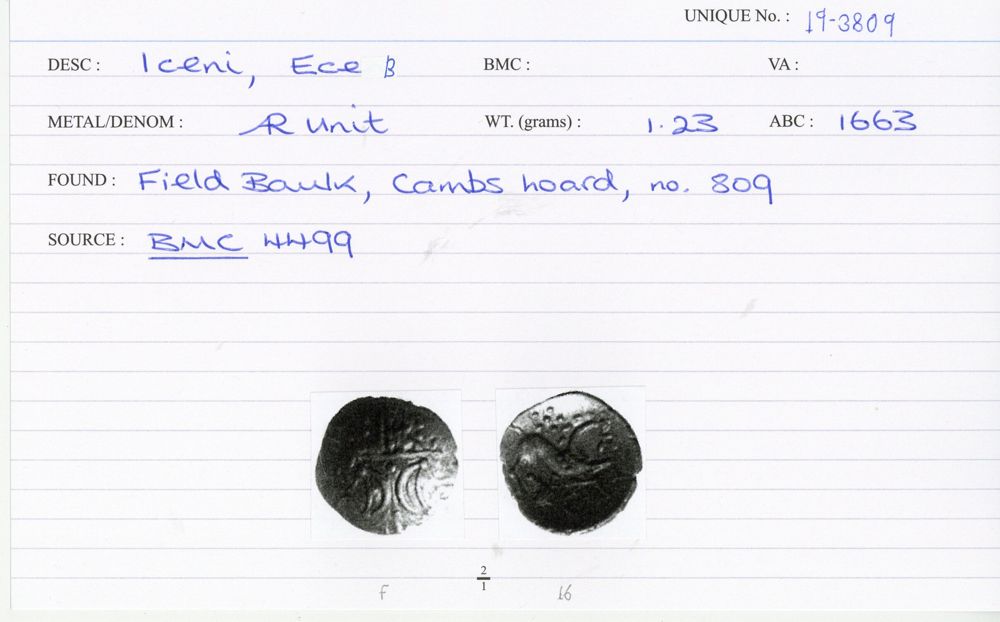 UNIQUE No. : 19-3809
DESC : Iceni, Ece B BMC : VA :
METAL/DENOM : AR unit WT. (grams) : 1.23 ABC : 1663
FOUND : Field Baulk, Cambs hoard, no. 809
SOURCE : BMC 4499
2
1
f 16